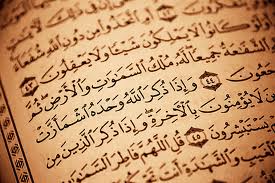 مِن دُونِ ٱللَّهِ شُفَعَآءَ
كَانُوا۟ لَا يَمْلِكُونَ شَيْـًٔا وَلَا يَعْقِلُونَ ٤٣
ٱلشَّفَٰعَةُ جَمِيعًا لَّهُۥ مُلْكُ ٱلسَّمَٰوَٰتِ وَٱلْأَرْضِ ثُمَّ
٤٤ وَإِذَا ذُكِرَ ٱللَّهُ وَحْدَهُ ٱشْمَأَزَّتْ
لَا يُؤْمِنُونَ بِٱلْءَاخِرَةِ وَإِذَا ذُكِرَ ٱلَّذِينَ مِن
يَسْتَبْشِرُونَ ٤٥ قُلِ ٱللَّهُمَّ فَاطِرَ ٱلسَّمَٰوَٰتِ
ٱلْغَيْبِ وَٱلشَّهَٰدَةِ أَنتَ